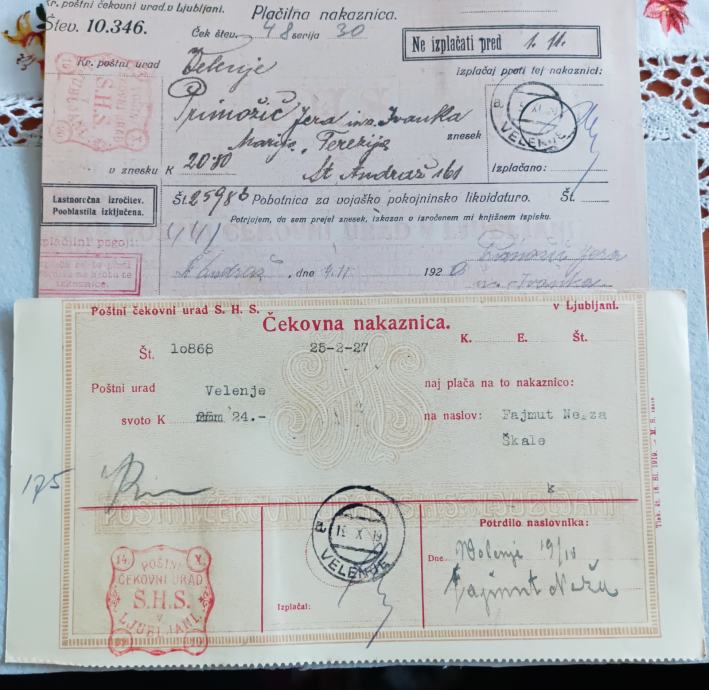 Kr. poštni čekovni urad v Ljubljani.
Plačilna nakaznica.
Štev. 10.346.
Ček štev. 48 serija 30
Ne izplačati pred 1. 11.
Kr. poštni urad Velenje
izplačaj proti tej nakaznici:
Primožič Jera in Ivanka
Marija, Terezija
znesek
St Andraš 161
v znesku K 20·80
Izplačano:
VELENJE
Lastnoročna izročitev.
Pooblastila izključena.
Št. 25986 Pobotnica za vojaško pokojninsko likvidaturo. Št.
Potrjujem, da sem prejel znesek, izkazan v izročenem mi knjižnem izpisku.
plačilni pogoji:
St Andraš, dne 4.11. 192
Primožič Jera
in Ivanka
Poštni čekovni urad S. H. S.
v Ljubljani.
Čekovna nakaznica.
K. E. Št.
Št. 10868 25-2-27
Poštni urad Velenje
naj plača na to nakaznico:
svoto K 24.-
na naslov: Fajmut Neža
Škale
175
k
SHS
Tisk. št. 18. Ei. 1919.
VELENJE
Potrdilo naslovnika:
Dne Velenje 19/10
Fajmut Neža
Izplačal:
14. X.
POŠTNI
ČEKOVNI URAD
S.H.S.
V
LJUBLJANI.